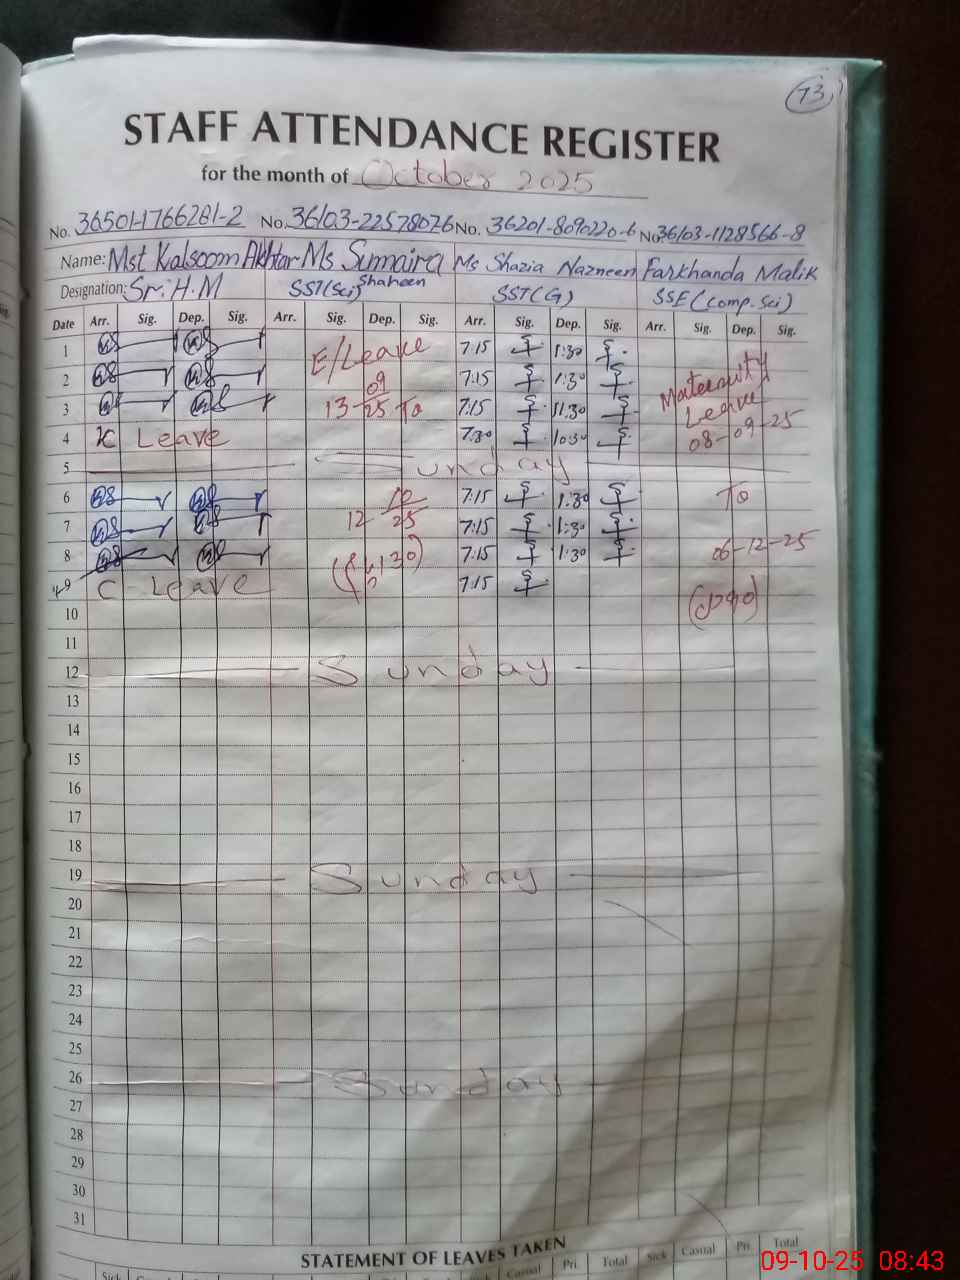 73
STAFF ATTENDANCE REGISTER
for the month of October 2025
No. 36501-1766281-2 No. 36103-2257807-6 No. 36201-8090220-6 No. 36103-1128566-8
Name: Mst Kalsoom Akhtar Ms Sumaira Shaheen Ms Shazia Nazneen Farkhanda Malik
Designation: Sr. H.M SST(Sci) SST(G) SSE(Comp.Sci)
Date Arr. Sig. Dep. Sig. Arr. Sig. Dep. Sig. Arr. Sig. Dep. Sig. Arr. Sig. Dep. Sig.
1 E/Leave 7:15 1:30
2 09 7:15 1:30 Maternity
3 13 25 To 7:15 11:30 Leave
4 Leave 7:30 10:30 08-09-25
5 Sunday
6 10 7:15 1:30 To
7 12 25 7:15 1:30
8 7:15 1:30 06-12-25
9 C-Leave 7:15
10
11
12 Sunday
13
14
15
16
17
18
19 Sunday
20
21
22
23
24
25
26 Sunday
27
28
29
30
31
STATEMENT OF LEAVES TAKEN
Sick Casual Pri. Total Sick Casual Pri. Total
09-10-25 08:43